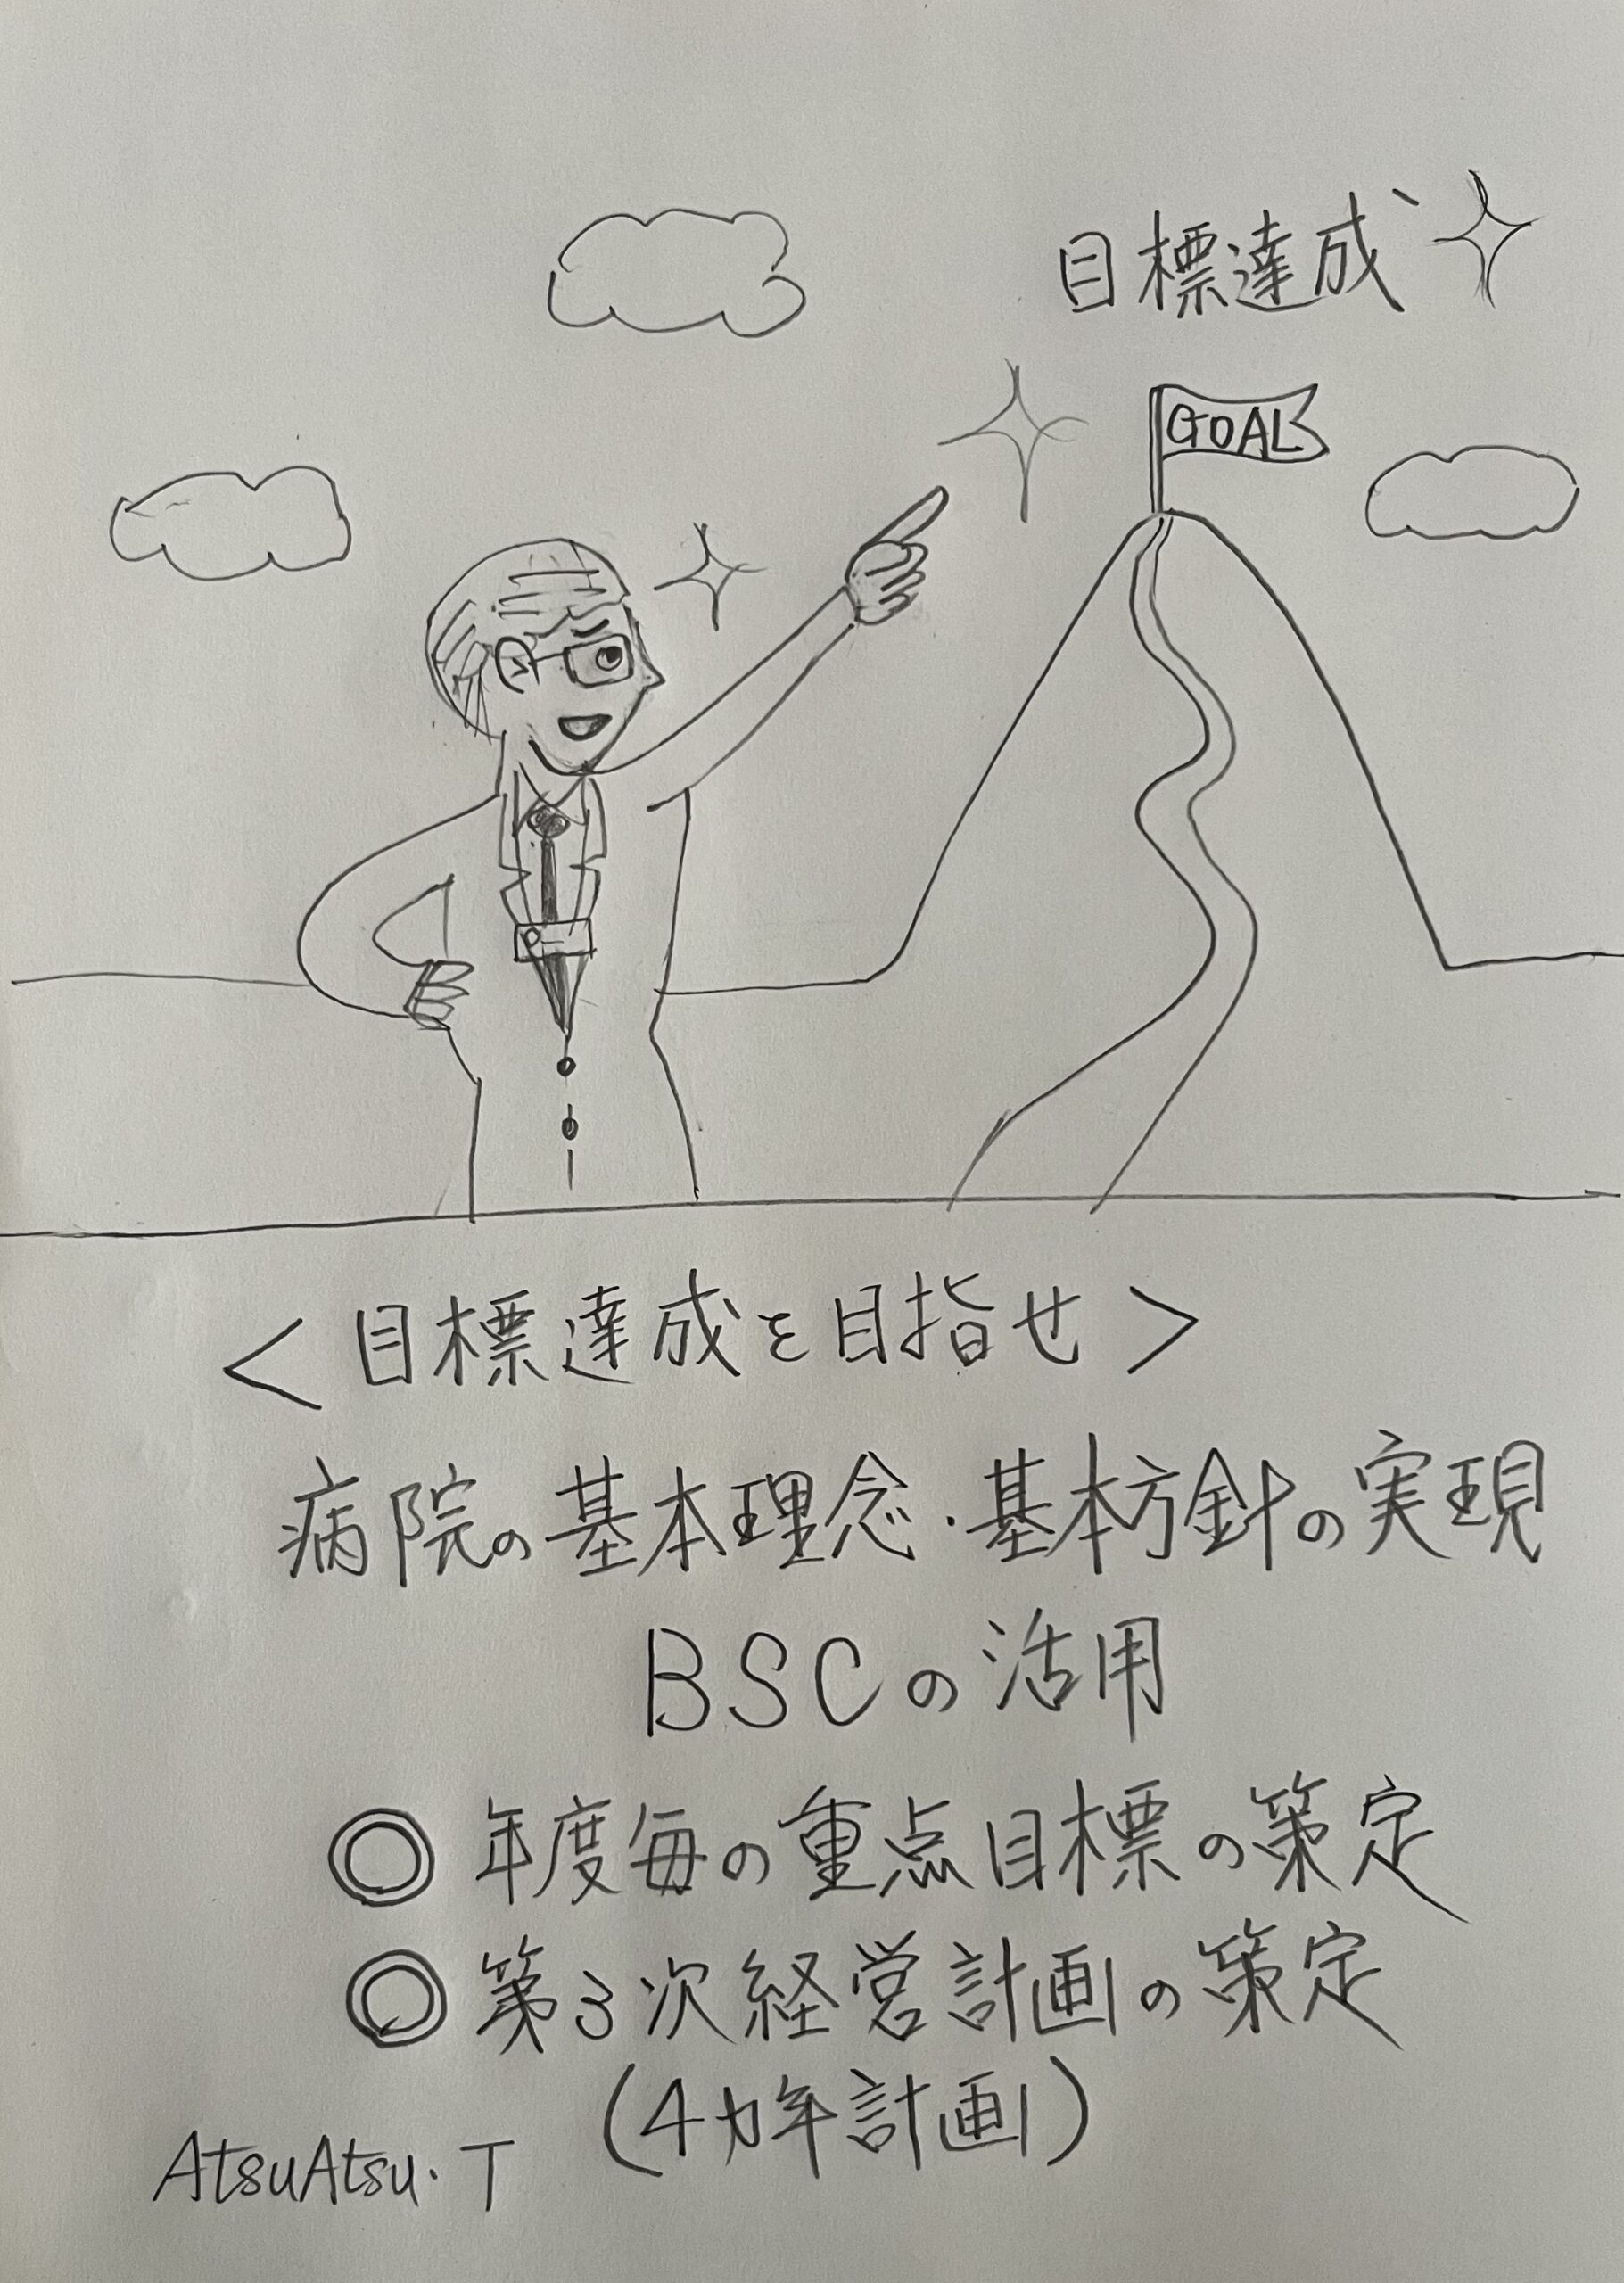 目標達成
GOAL
＜目標達成を目指せ＞
病院の基本理念・基本方針の実現
BSCの活用
◎ 年度毎の重点目標の策定
◎ 第3次経営計画の策定
(4カ年計画)
AtsuAtsu・T